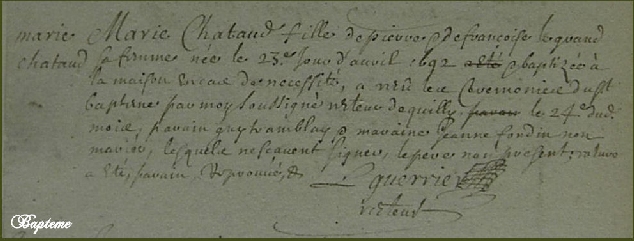 marie Marie Chataud fille de pierre & de francoise legrand
chataud sa femme née le 23.e Jour d'avril 1692 a été & baptizée à
la maison en cas de necessité, a receu les Ceremonies du st
baptesme par moy soussigné recteur de quilly le 24.e dud.
mois, parain guy tramblay & maraine jeanne fondin non
mariés, lesquels ne scavent signer, le pere non present;
a été, parain Repronué, &
L guerrier
recteur
Bapteme